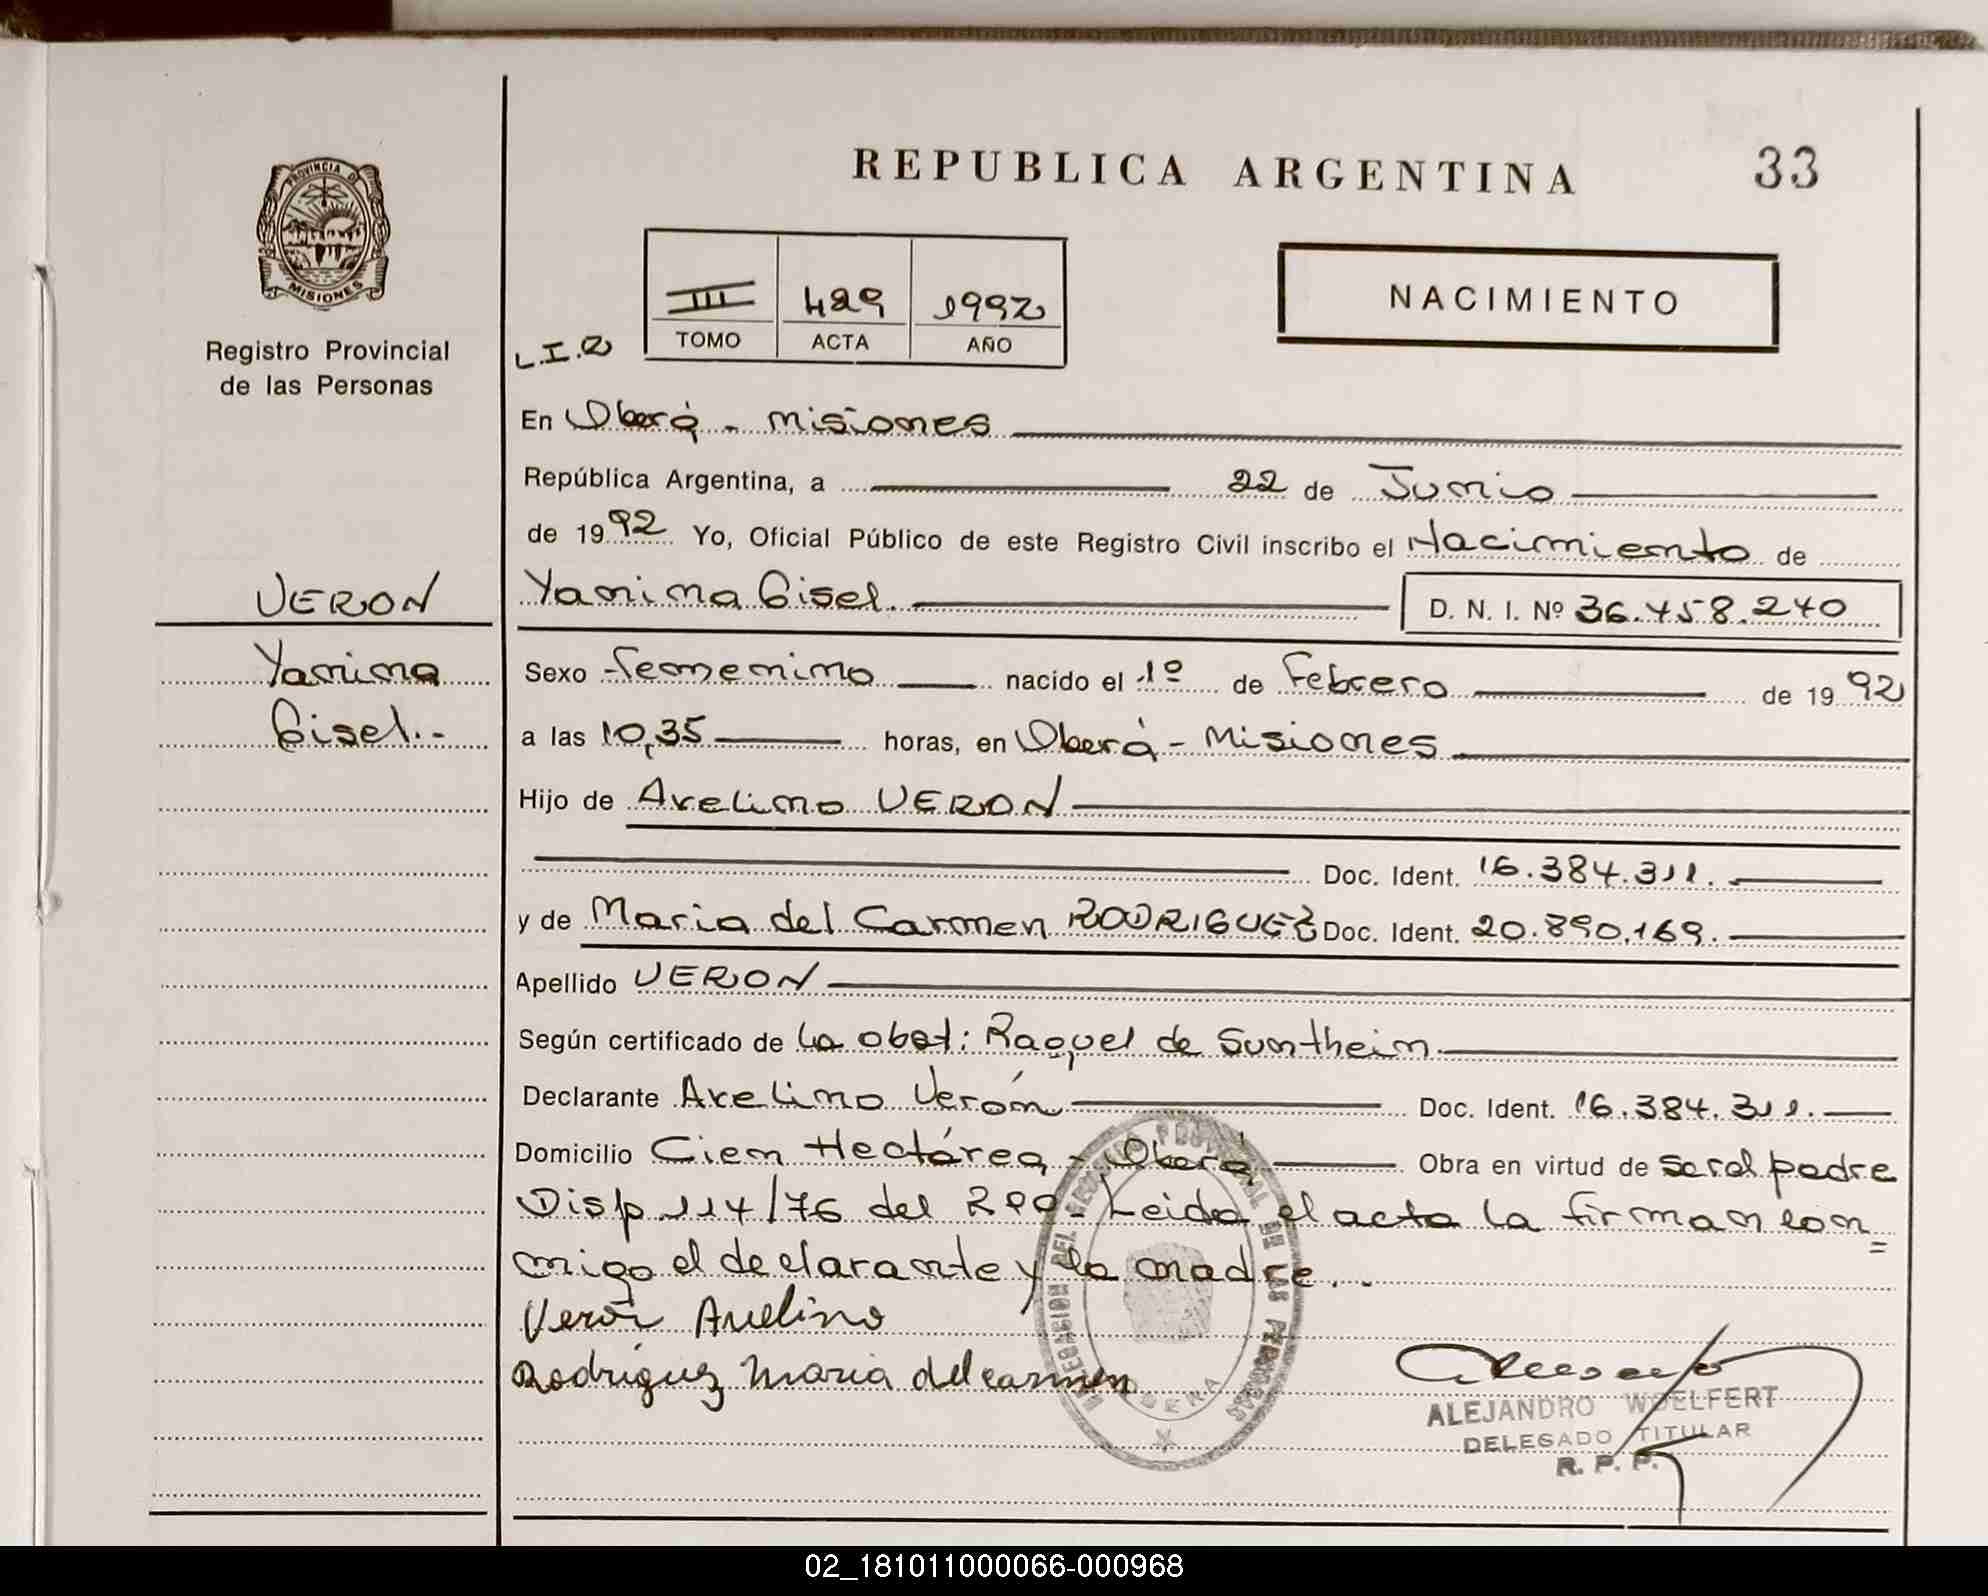 REPUBLICA ARGENTINA
33
PROVINCIA DE
MISIONES
Registro Provincial
de las Personas
III 429 1992
TOMO ACTA AÑO
L.I.2
NACIMIENTO
En Oberá - Misiones
República Argentina, a 22 de Junio
de 1992 Yo, Oficial Público de este Registro Civil inscribo el Nacimiento de
VERON
Yanina Gisel. D. N. I. Nº 36.458.240
Yanina
Gisel.-
Sexo Femenino nacido el 1º de Febrero de 1992
a las 10,35 horas, en Oberá - Misiones
Hijo de Avelino VERON
Doc. Ident. 16.384.311.
y de Maria del Carmen RODRIGUEZ Doc. Ident. 20.890.169.
Apellido VERON
Según certificado de la obst: Raquel de Suntheim
Declarante Avelino Verón Doc. Ident. 16.384.311.
Domicilio Cien Hectárea - Oberá Obra en virtud de ser el padre
Disp 114/76 del RPP. Leida el acta la firman con=
migo el declarante y la madre..
Verón Avelino
Rodriguez Maria del carmen
DELEGACION DEL REGISTRO PROVINCIAL DE LAS PERSONAS
OBERA
ALEJANDRO WOELFERT
DELEGADO TITULAR
R. P. P.
02_181011000066-000968